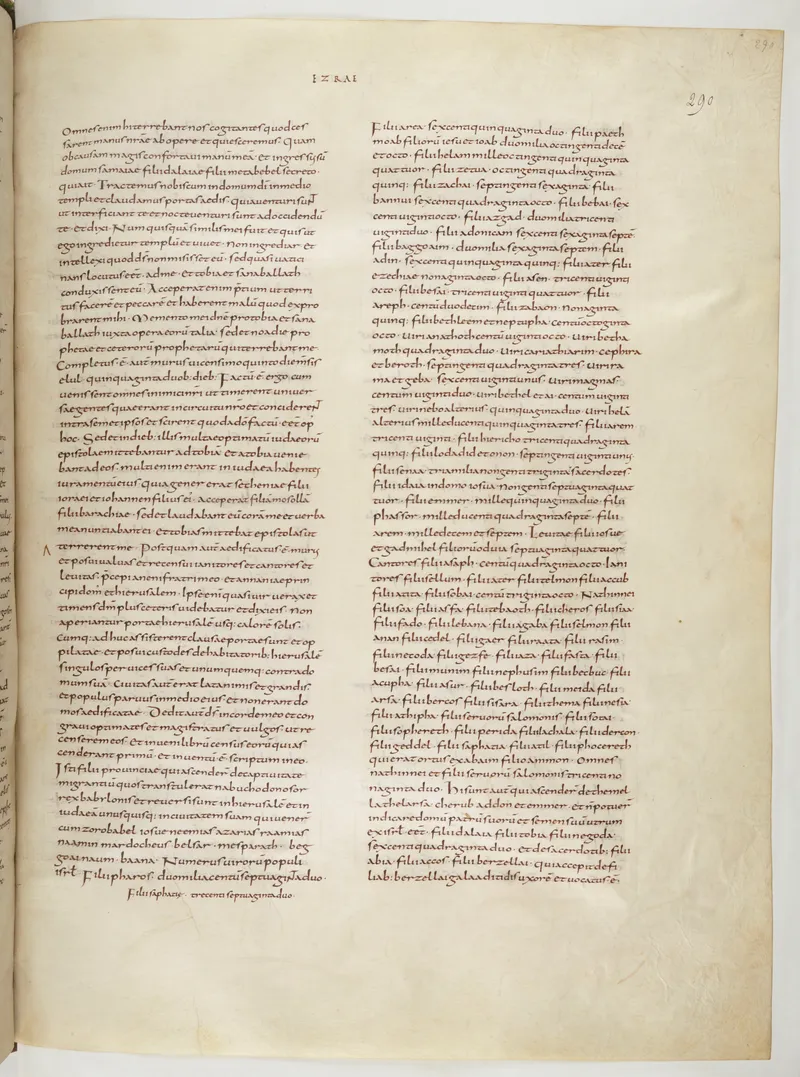 EZRAE
290
Omnes enim hi terrebant nos cogitantes quod ces
sarent manus nr̄ae ab opere et quiesceremus. Quam
obcausam magis confortaui manū meā. et ingressus sū
domum samaiae filii dalaiae filii metabehel secreto.
qui ait. Tractemus nobiscum in domum dī in medio
templi et claudamus portas aedis. qui auenturi sunt
ut interficiant te et nocte uenturi sunt ad occidendū
te. et dixi. Num quisquā similis mei fuit et quis ut
ego ingredietur templū et uiuet. non ingrediar. et
intellexi quod d̄s non misisset eū. sed quasi uatici
nans locutus eēt. ad me. et tobia et sanaballath
conduxissent eū. Acceperat enim p̄tium ut terri
tus facerē et peccarē et haberent malū quod expro
brarent mihi. Memento mei dn̄e pro tobia et sana
ballath iuxta opera eorū talia. sed et noadie pro
phetae et ceterorū prophetarū qui terrebant me.
Completus ē. aut̄ murus uicensimo quinto die m̄sis
elul. quinquaginta duob: dieb: Factū ē. ergo cum
uenissent omnes inimici nr̄i ut timerent uniuer
sae gentes quae erant in circuitu nr̄o et conciderent
intra semet ipsos et scirent quod a dō factū. eēt op
hoc. Sed et in dieb: illis multae optimatū iudaeorū
epistolae mittebantur ad tobiā et a tobia uenie
bant ad eos. multi enim erant in iudaea habentes
iuramentū eius quia gener erat secheniae filii
iorae. et iohannen filius ei. acceperat filiā mosollā
filii barachiae. sed et laudabant eū corā me et uerba
mea nuntiabant ei. et tobias mittebat epistolas ut
terrerent me. Postquam aut̄ aedificatus ē. murus
et posui ualuas et recensui ianitores et cantores et
leuitas. p̄cepi aneni fratri meo. et annaniae prin
cipi domꝰ de hierusalem. Ipse enī quasi uir uerax et
timens dm̄ plus ceteris uidebatur et dixi eis. Non
aperiantur portae hierusalē usq: calorē solis.
Cumq: adhuc assisterent clausae portae sunt et op
pilatae. et posui custodes de habitatorib: hierusalē
singulos per uices suas et unumquemq: contra do
mum suā. Ciuitas aut̄ erat lata nimis et grandis.
et populus paruus in medio eius et non erant do
mos aedificatae. Dedit aut̄ d̄s in cor de meo et con
graui optimates et magistratus et uulgos. ut re
censerem eos. et inueni librū census eorū qui as
cenderant primū. et inuentū ē. scriptum in eo.
Isti filii prouinciae qui ascender̄ de captiuitate
migrantiū quos transtulerat nabuchodonosor
rex babylonis et reuersi sunt in hierusalē et in
iudaeā unusquisq: in ciuitatem suam qui uener̄
cum zorobabel iosue neemias azarias raamias
naamin mardocheus belsar. mespharath. beg
goai naum. baana. Numerus uirorū populi
isrl̄. Filii pharos. duo milia centū septuaginta duo.
Filii saphatie. trecenti septuaginta duo.
Filii area. sexcenti quinquaginta duo. filii paeth
moab filiorū iesu et ioab duo milia octingenti decē
et octo. filii helam mille octingenti quinquaginta
quattuor. filii zetua. octingenti quadraginta
quinq: filii zachai. septingenti sexaginta. filii
bannui sexcenti quadraginta octo. filii bebai. sex
centi uiginti octo. filii azgad. duo milia trecenti
uiginti duo. filii adonicam sexcenti sexaginta septē.
filii baggoaim. duo milia sexaginta septem. filii
adin. sexcenti quinquaginta quinq: filii azer filii
ezechiae nonaginta octo. filii asen. trecenti uiginti
octo. filii besai. trecenti uiginti quattuor. filii
areph. centū duodecim. filii zabaon. nonaginta
quinq: filii bethleem et nepupha. centū octoginta
octo. uiri anathoth centū uiginti octo. Uiri betha
moth quadraginta duo. uiri cariathiarim. cephira
et beroth. septingenti quadraginta tres. uiri ra
ma et geba. sexcenti uiginti unus. uiri magmas.
centum uiginti duo. uiri bethel et ai. centum uiginti
tres. uiri nebo alterius. quinquaginta duo. uiri helā
alterius mille ducenti quinquaginta tres. filii arem
trecenti uiginti. filii hiericho trecenti quadraginta
quinq: filii lod adid et onon. septingenti uiginti unꝰ.
filii senaa. tria milia nongenti triginta. sacerdotes
filii idaia in domo iosua. nongenti septuaginta quat
tuor. filii emmer. mille quinquaginta duo. filii
phassor. mille ducenti quadraginta septē. filii
arem. mille decem et septem. Leuitae. filii iosue
et gadmihel filiorū oduia. septuaginta quattuor.
Cantores filii asaph. centū quadraginta octo. Iani
tores filii sellum. filii azer filii telmon filii accub
filii atita. filii sobai. centū triginta octo. Nathinnei
filii soa. filii asfa. filii tebaoth. filii cheros. filii siaa
filii fado. filii lebana. filii agaba filii selmon filii
anan filii cedel. filii gaer filii raaia filii rasim.
filii necoda. filii gezse filii aza. filii fasia. filii
besai. filii munim filii nephusim filii becbuc. filii
acupha. filii asur. filii besloth. filii meida filii
arsa. filii bercos filii sisara. filii thema filii nesia.
filii athipha. filii seruorū salomonis. filii sotai.
filii sophereth. filii perida filii iachala. filii dercon.
filii geddel. filii saphatia filii atil. filii phocereth
qui erat ortus ex abaim filio ammon. Omnes
nathinnei et filii seruorū salomonis trecenti no
naginta duo. Hi sunt aut̄ qui ascender̄ de themel
la thelarsa. cherub addon et emmer. et n̄ potuer̄
indicare domū patrū suorū et semen suū utrum
ex isrl̄. eēt. filii dalaia filii tobia filii negoda.
sexcenti quadraginta duo. et de sacerdotib: filii
abia. filii accos. filii berzellai. qui accepit de fi
liab: berzellai galaaditidis uxorē et uocatus ē.